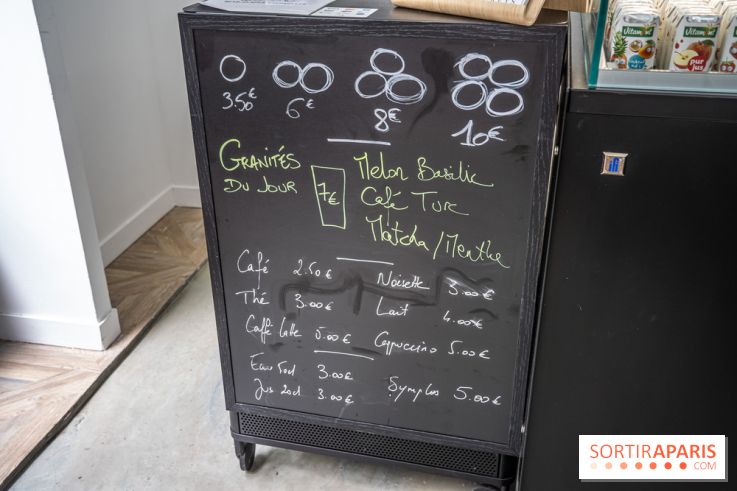 3.50€ 6€ 8€ 10€
GRANITÉS
DU JOUR
7€
Melon Basilic
Café Turc
Matcha/Menthe
Café 2.50€ Noisette 3.00€
Thé 3.00€ Lait 4.00€
Caffé Latte 5.00€ Cappuccino 5.00€
Eau 50cl 3.00€
Jus 20cl 3.00€ Symples 5.00€
Vitamont
Vitamont
pur
jus
SORTIRAPARIS
.COM